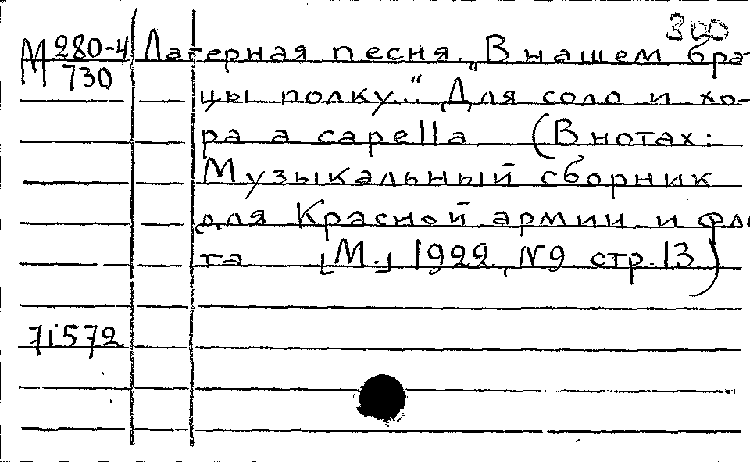 300
М 280-4 Лагерная песня „В нашем бра-
730
цы полку." Для соло и хо-
ра a capella (В нотах:
Музыкальный сборник
для Красной армии и фло-
та [М.] 1922, N9 стр. 13)
71572